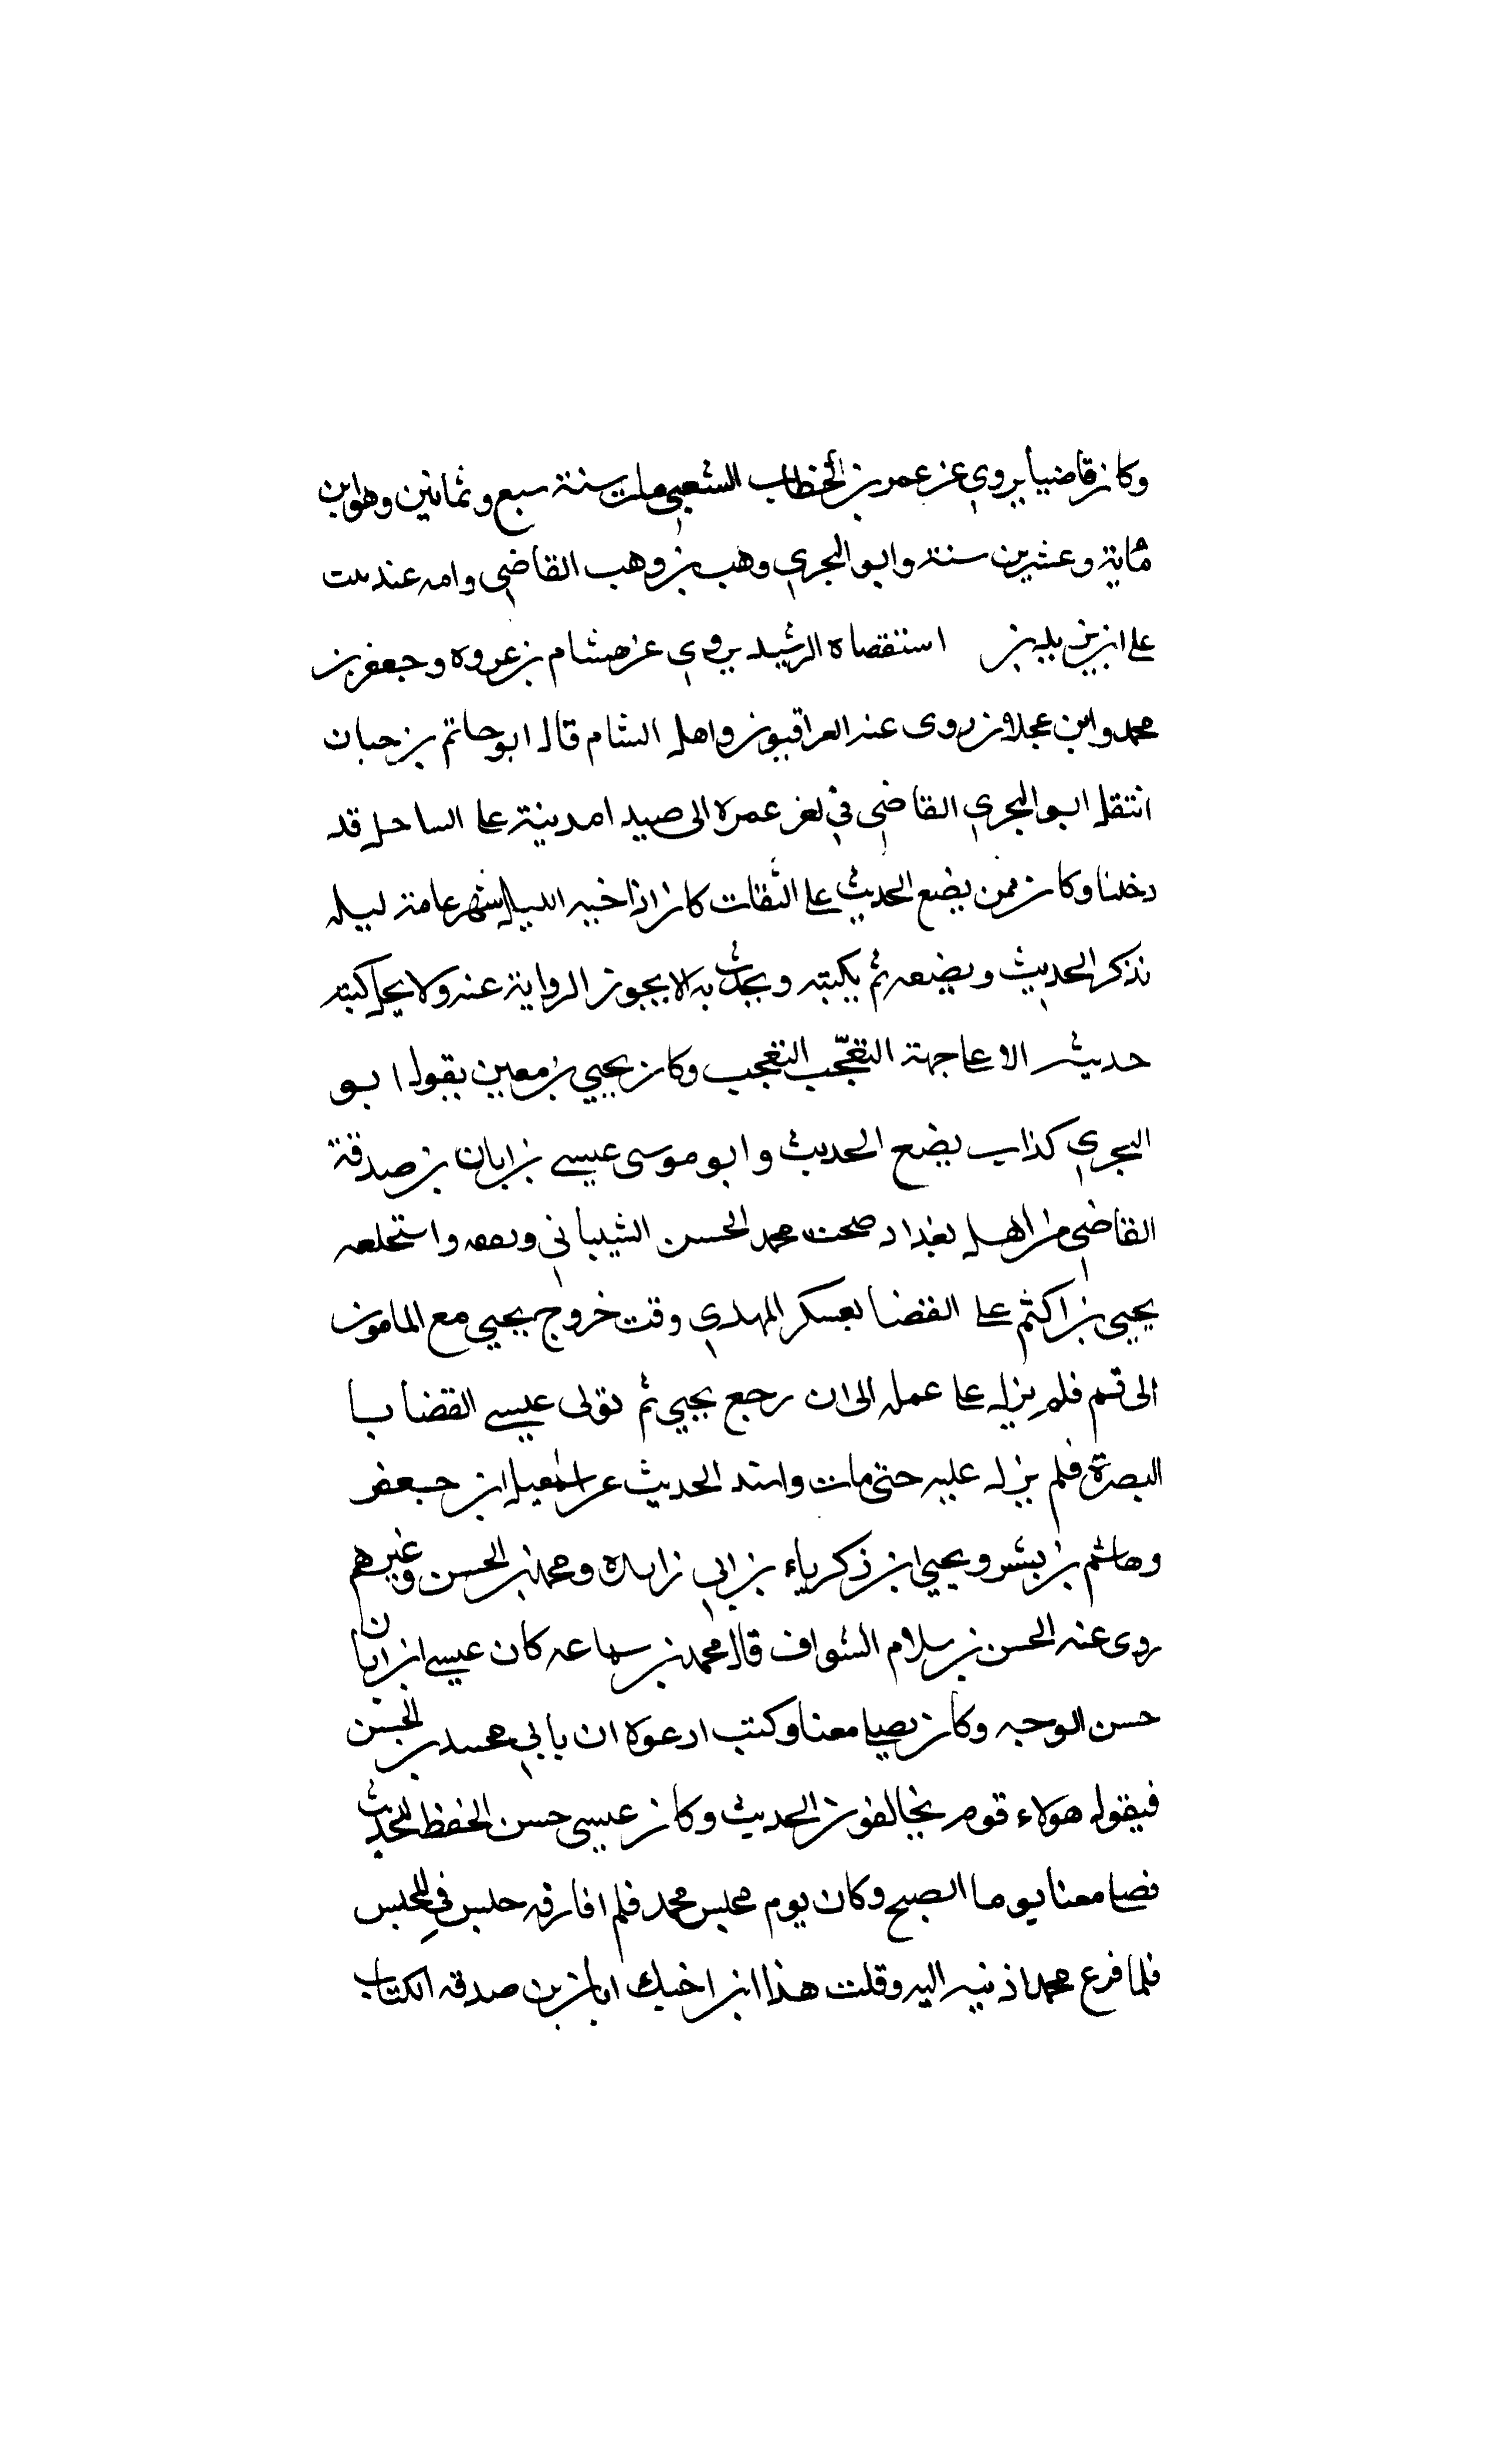 وكان قاضيا يروي عن عمر بن الخطاب الشعبي مات سنة سبع وثمانين وهو ابن
مائة وعشرين سنة وابو البجري وهب بن وهب القاضي وامه عند بنت
على ابن يزيد بن استقصاه الرشيد يروي عن هشام بن عروه وجعفر بن
محمد وابن عجلان روى عنه العراقيون واهل الشام قال ابو حاتم بن حبان
انتقل ابو البجري القاضي في اخر عمره الى صيدا مدينة على الساحل قد
دخلنا وكان ممن يضع الحديث على الثقات كان اذا خبيه الليل شهر عامة ليله
تذكر الحديث ويضعه ثم يكتبه ويحدث به لا يجوز الرواية عنه ولا يحل كتبه
حديثه الا على جهة التعجب التعجب وكان يحيي بن معين يقول ابو
البجري كذاب يضع الحديث وابو موسى عيسى بن ابان بن صدقة
القاضي من اهل بغداد صحب محمد الحسن الشيباني وتفقه واستخلفه
يحيى بن اكثم على القضا بعسكر المهدي وقت خروج يحيي مع المامون
الى قم فلم يزل على عمله الى ان رجع يحيي ثم تولى عيسى القضا با
البصرة فلم يزل عليه حتى مات واسند الحديث عن اسمعيل ابن جعفر
وهاشم بن بشر ويحيي ابن ذكرياء بن ابي زايده ومحمد بن الحسن وغيرهم
روى عنه الحسن بن سلام الشواف قال محمد بن سماعه كان عيسى ابن ابان
حسن الوجه وكان يصلي معنا وكنت ادعوه ان ياتي محمد بن الحسن
فيقول هولاء قوم يخالفون الحديث وكان عيسى حسن الحفظ للحديث
فصلى معنا يوما الصبح وكان يوم مجلس محمد فلم افارقه جلس في المجلس
فلما فرع محمد اذنيه اليه وقلت هذا ابن اخيك ابان بن صدقه الكتاب